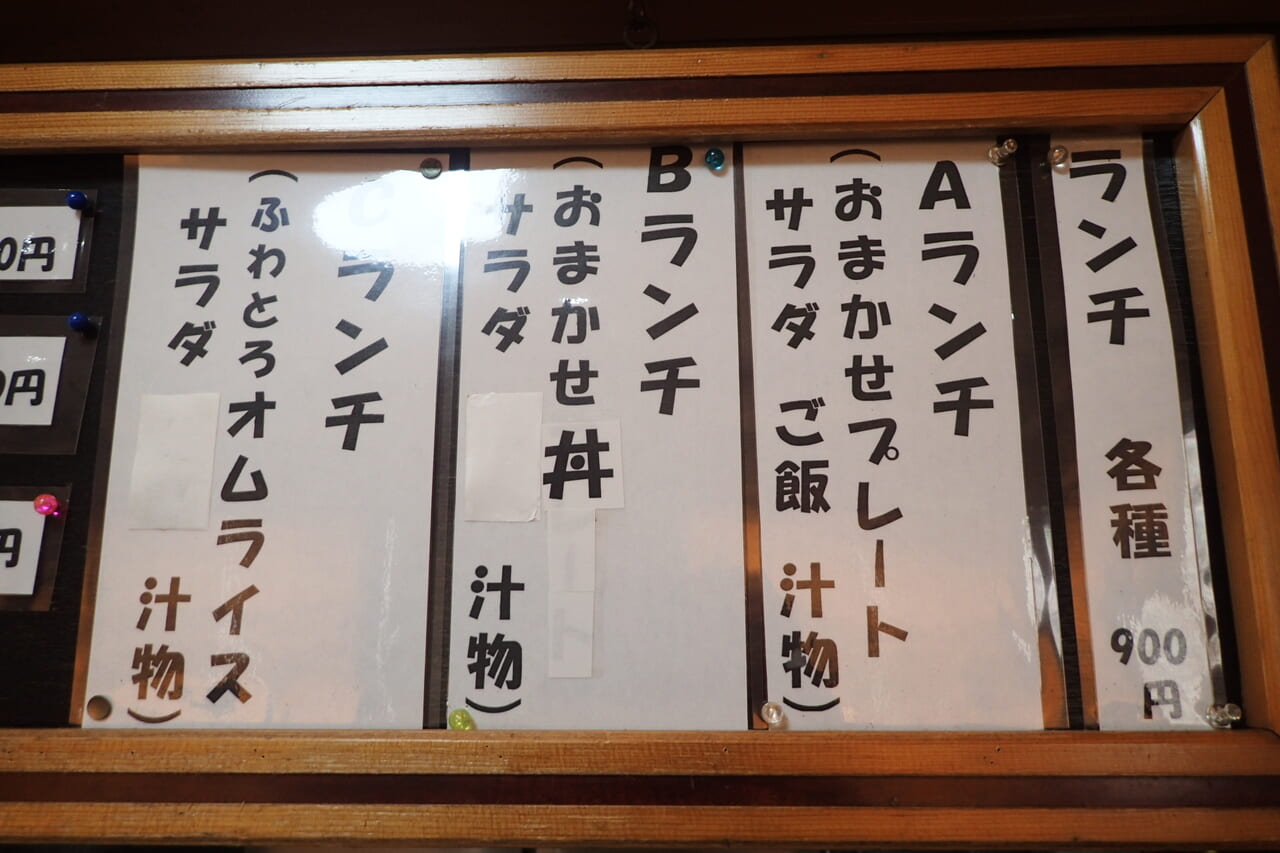 ランチ 各種 900円
Aランチ
(おまかせプレート
サラダ ご飯 汁物)
Bランチ
(おまかせ丼
サラダ 汁物)
Cランチ
(ふわとろオムライス
サラダ 汁物)
0円
0円
円